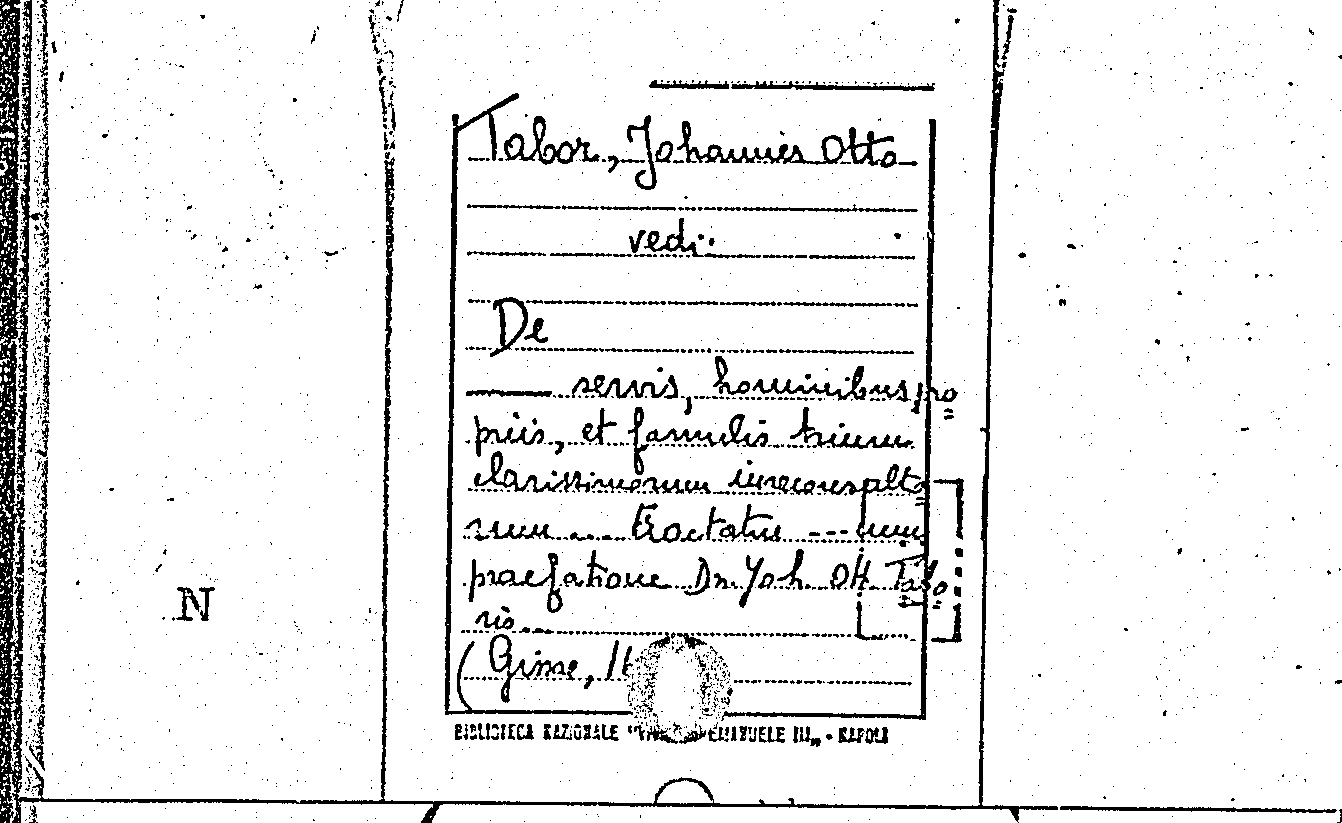 Tabor, Johannes Otto
vedi:
De
servis, hominibus pro=
priis, et famulis trium
clarissimorum iureconsulto=
rum ... Tractatus --- cum
praefatione Dn. Joh. Ott. Tabo=
ris...
(Gissae, 16
N
BIBLIOTECA NAZIONALE "VITT. EMANUELE III„ - NAPOLI